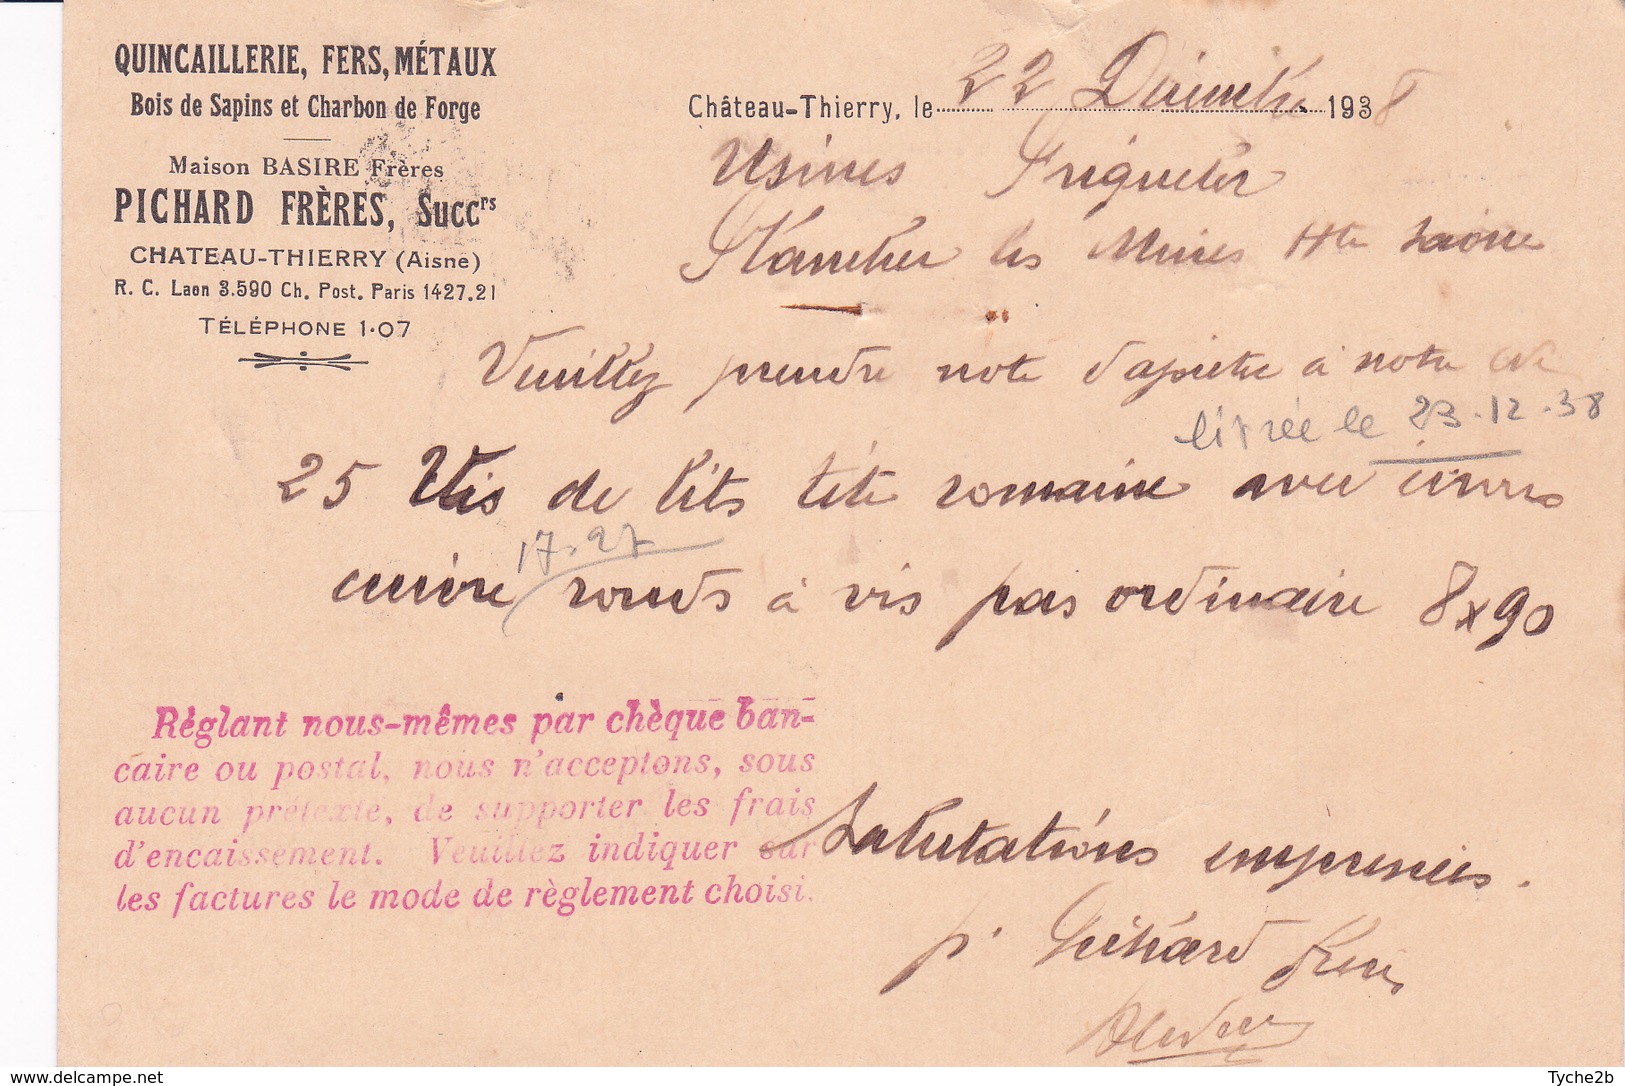 QUINCAILLERIE, FERS, MÉTAUX
Bois de Sapins et Charbon de Forge
Maison BASIRE Frères
PICHARD FRÈRES, Succrs
CHATEAU-THIERRY (Aisne)
R. C. Laon 3.590 Ch. Post. Paris 1427.21
TÉLÉPHONE 1·07
Château-Thierry, le 22 Décembre 1938
Usines
Plancher les Mines Hte Saône
Veuillez prendre note d'ajouter à notre cde
livrée le 23.12.38
25 Vis de lits tête romaine avec
17.27
cuivre ronds à vis pas ordinaire 8x90
Réglant nous-mêmes par chèque ban-
caire ou postal, nous n'acceptons, sous
aucun prétexte, de supporter les frais
d'encaissement. Veuillez indiquer sur
les factures le mode de règlement choisi.
Salutations empressées.
p. Pichard Frères
Tyche2b